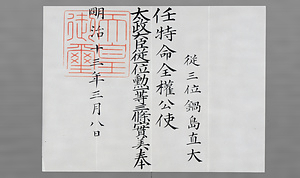 從三位鍋島直大
任特命全權公使
太政大臣從一位勲一等三條實美奉
明治十三年三月八日
天皇御璽